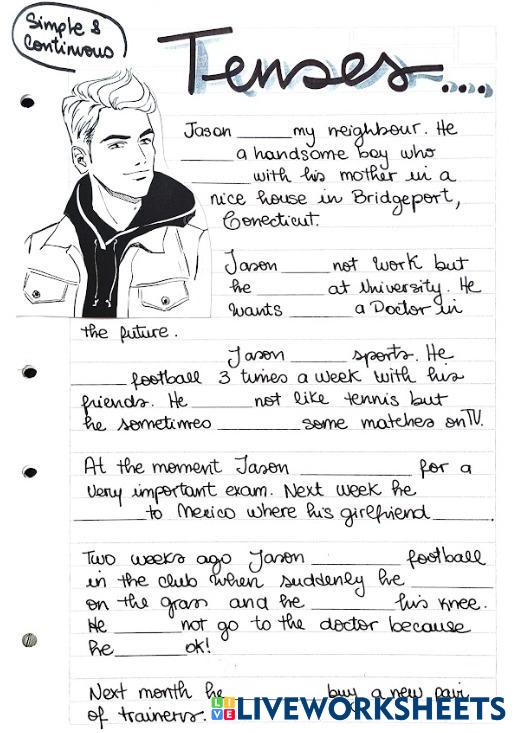 Simple &
Continuous
Tenses....
Jason ______ my neighbour. He
______ a handsome boy who
______ with his mother in a
nice house in Bridgeport,
Conecticut.
Jason ____ not work but
he ______ at University. He
wants ______ a Doctor in
the future.
Jason ______ sports. He
______ football 3 times a week with his
friends. He ______ not like tennis but
he sometimes ________ some matches on TV.
At the moment Jason __________ for a
very important exam. Next week he
_______ to Mexico where his girlfriend ______.
Two weeks ago Jason _________ football
in the club when suddenly he ________
on the grass and he ________ his knee.
He ______ not go to the doctor because
he ______ ok!
Next month he ________ buy a new pair
of trainers.
LIVE LIVEWORKSHEETS